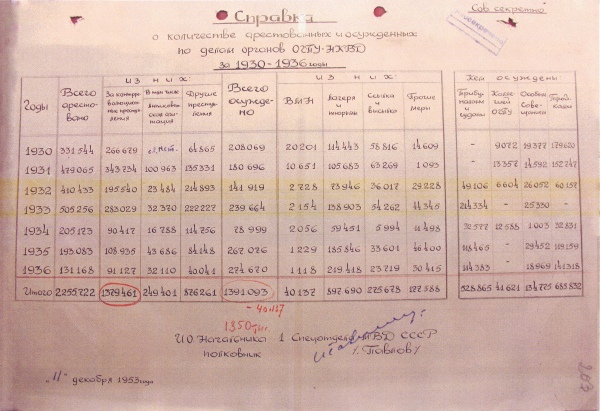 Справка
Сов секретно
о количестве арестованных и осужденных
по делам органов ОГПУ-НКВД
за 1930-1936 годы
Годы Всего арестовано из них: Всего осуждено из них: Кем осуждены:
За контрреволюционные преступления В том числе антисоветская агитация Другие преступления ВМН Лагеря и тюрьмы Ссылка и высылка Прочие меры Трибуналами и судами Коллегией ОГПУ Особым совещ. Тройками
1930 331544 266679 64865 208069 20201 114443 58816 14609 - 9072 19377 179620
1931 479065 343734 100963 135331 180696 10651 105683 63269 1093 - 13357 14592 152747
1932 410433 195540 23484 214893 141919 2728 73946 36017 29228 49106 6604 26052 60157
1933 505256 283029 32370 222227 239664 2154 138903 54262 44345 214334 - 25330 -
1934 205173 90417 16788 114756 78999 2056 59451 5994 11498 32577 12588 1003 32831
1935 193083 108935 43686 84148 267076 1229 185846 33601 46400 118465 - 29452 119159
1936 131168 91127 32110 40041 274670 1118 219418 23719 30415 114383 - 18969 141318
Итого 2255722 1379461 249401 876261 1391093 40137 897690 275678 177588 528865 41621 134775 685832
- 40137
1350 тыс
И О Начальника 1 Спецотдела МВД СССР
полковник /Павлов/
"11" декабря 1953 года